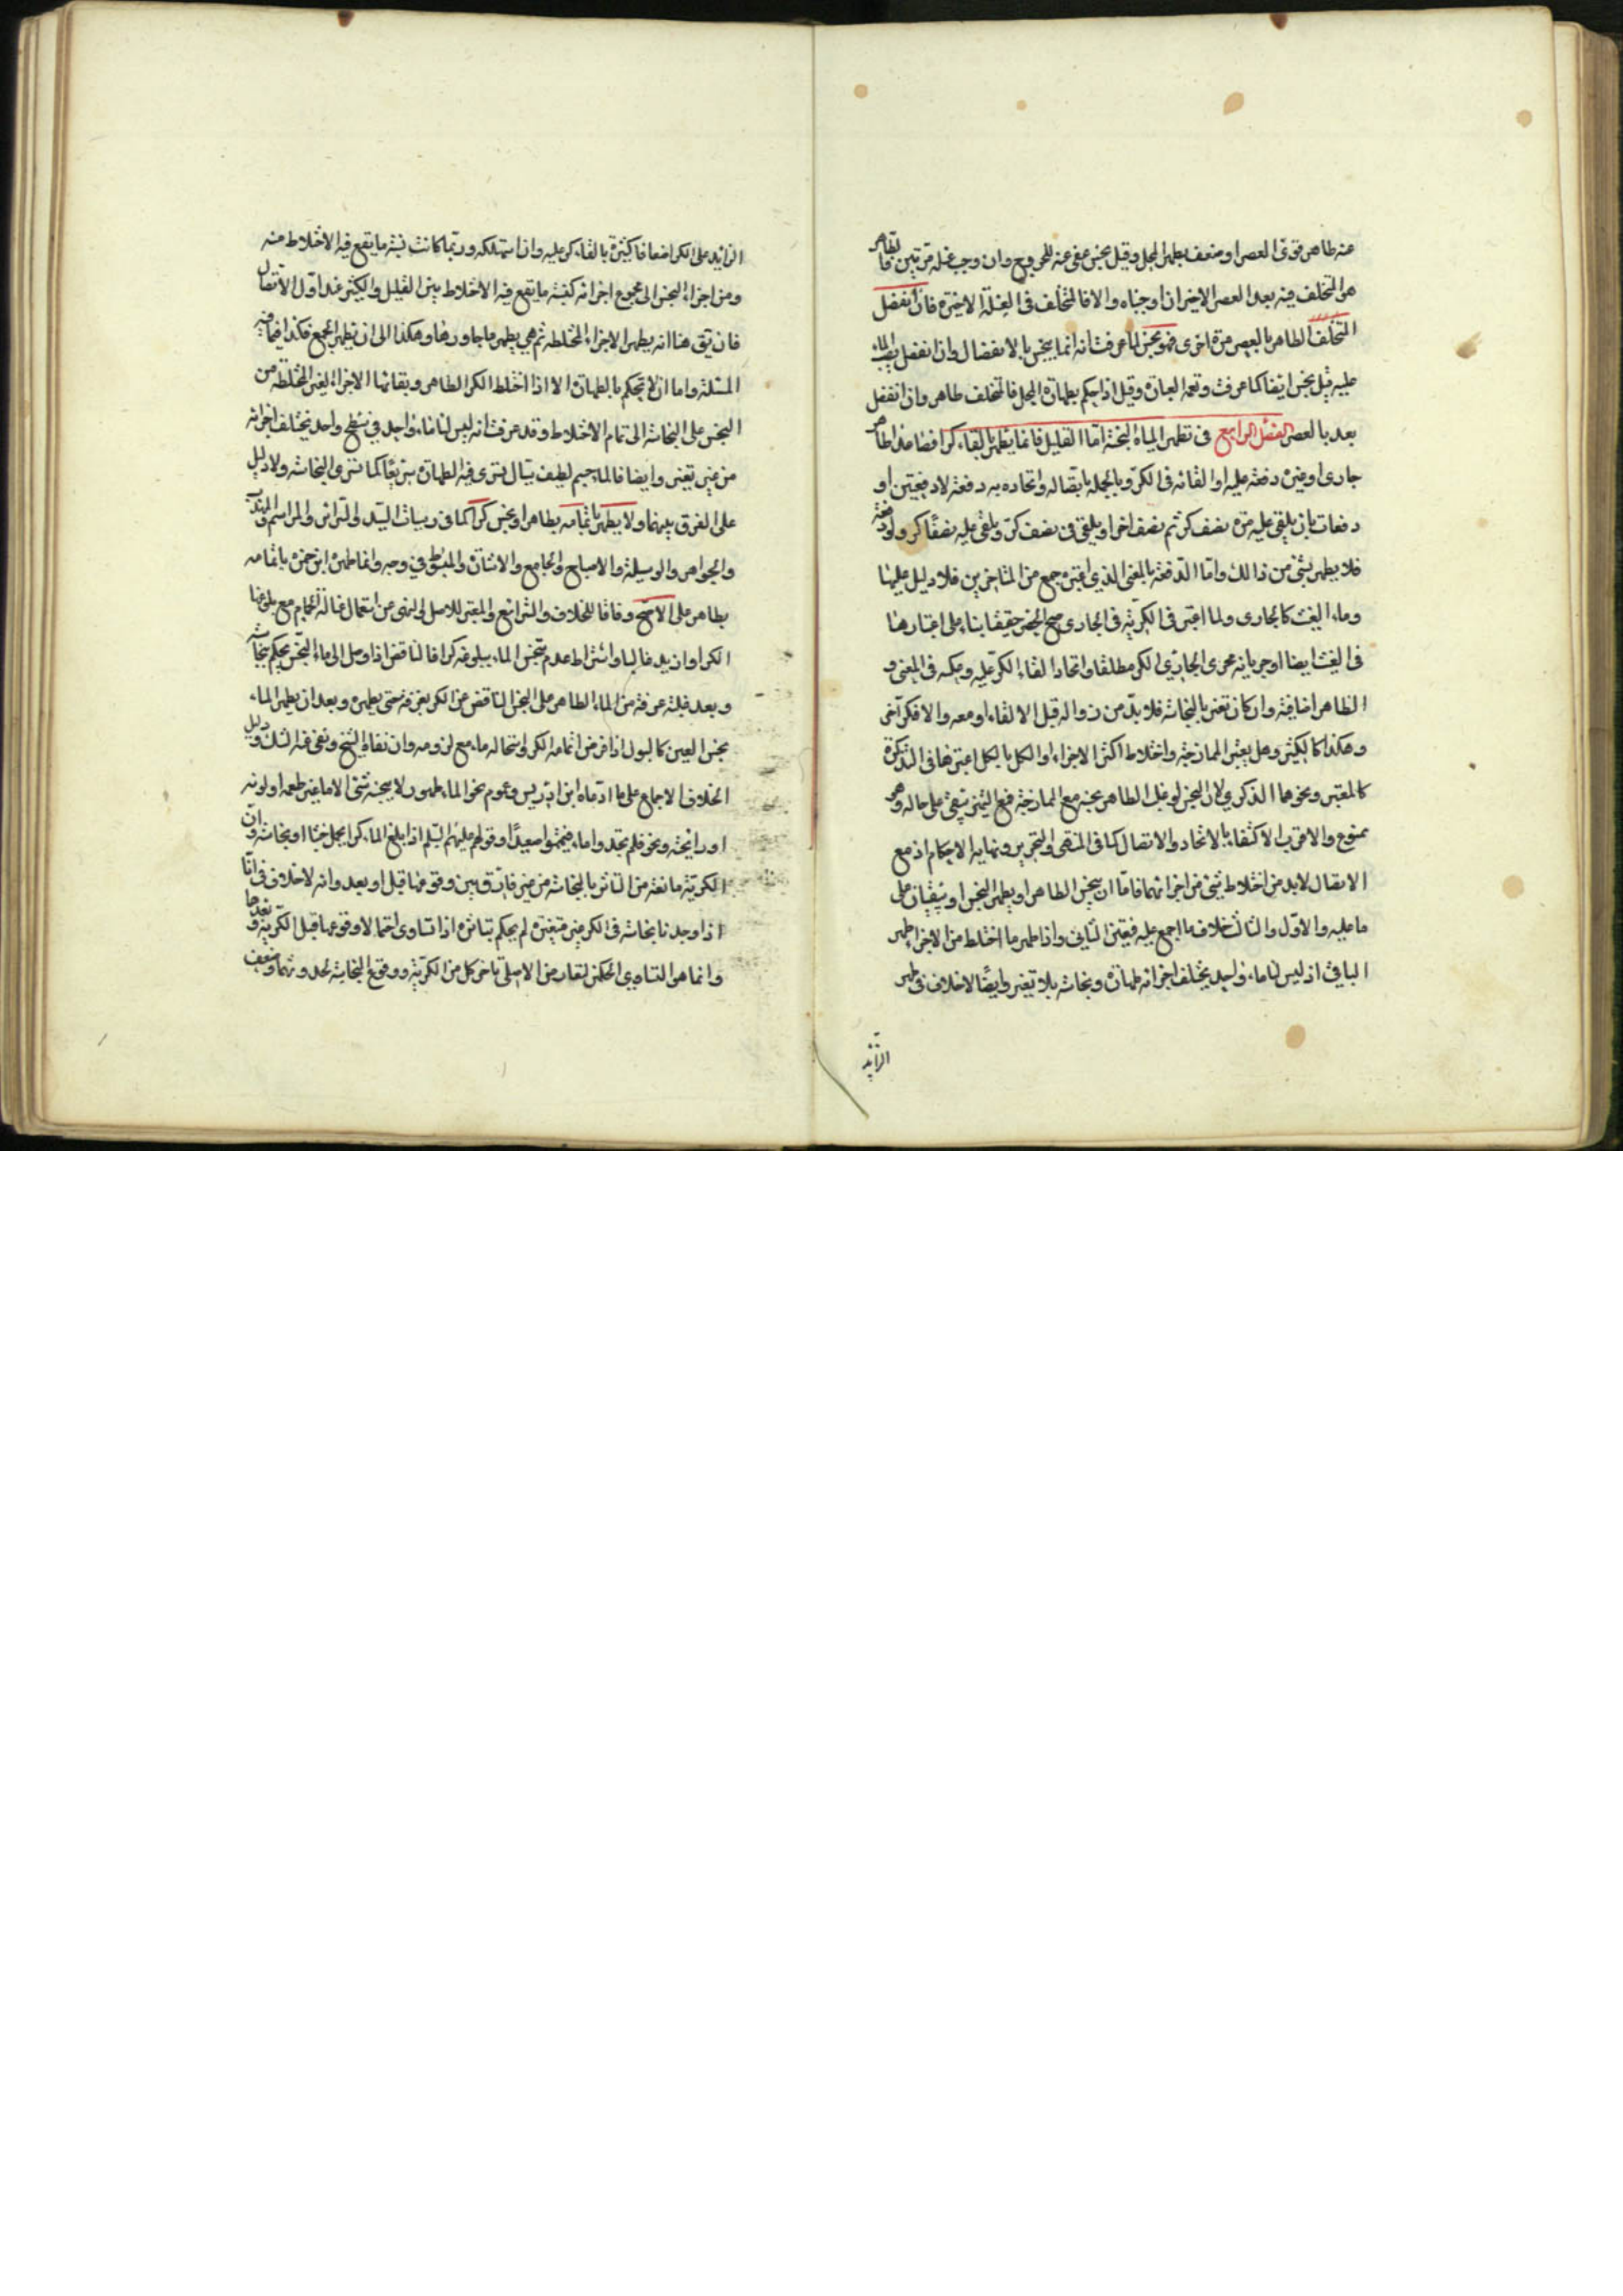 عنه طاهر قوى العصر او ضعف بطهر المحل وقيل نجس عفى عنه للحرج وان وجب غسله مرتين فالطاهر
هو المتخلف فيه بعد العصر الاخير ان اوجبناه والا فالمتخلف فى الغسلة الاخيرة فان انفصل
المتخلف الطاهر بالعصر مرة اخرى فهو نجس لما عرفت انه انما ينجس بالانفصال وان انفصل بصب الماء
عليه قيل نجس ايضا كما عرفت وتعمه العبارة وقيل اذا حكم بطهارة المحل فالمتخلف طاهر وان انفصل
بعد بالعصر الفصل الرابع فى تطهير المياه النجسة اما القليل فانما يطهر بالقاء كر افصاعدا طاهر
جارى او غيره دفعة عليه او القائه فى الكر وبالجملة باتصاله واتحاده به دفعة لا دفعتين او
دفعات بان يلقى عليه مرة نصف كر ثم نصف اخر او يلقى فى نصف كر ويلقى عليه نصف كر ولو دفعة
فلا يطهر بشئ من ذالك واما الدفعة بالمعنى الذي اعتبره جمع من المتاخرين فلا دليل عليها
وماء الغيث كالجارى ولما اعتبر فى الكرية فى الجارى صح الحصر حقيقا بناء على اعتبارها
فى الغيث ايضا او جريانه مجرى الجاري الكر مطلقا واتحاد القاء الكر عليه وعكسه فى المعنى و
الظاهر اضافية وان كان تغير بالنجاسة فلا بد من زواله قبل الالقاء او معه والا فكر آخر
وهكذا كالكثير وهل يعتبر الممازجة واختلاط اكثر الاجزاء او الكل بالكل اعتبرها فى التذكرة
كالمعتبر ونحوهما الذكري لان النجس لو غلب الطاهر نجسه مع الممازجة فمع التميز يبقى على حاله وهو
ممنوع والاقرب الاكتفاء بالاتحاد والاتصال كما فى المنتهى والتحرير ونهاية الاحكام اذ مع
الاتصال لا بد من اختلاط شئ من اجزائهما فاما ان ينجس الطاهر او يطهر النجس او يبقيان على
ما عليه والاول والثالث خلاف ما اجمع عليه فتعين الثاني واذا طهر ما اختلط من الاجزاء طهر
الباقي اذ ليس لنا ماء واحد يختلف اجزائه طهارة ونجاسة بلا تغير وايضا لا خلاف فى طهر
الزايد
الزايد على الكر اضعافا كثيرة بالقاء كر عليه وان استهلكه وربما كانت نسبة ما يقع فيه الاختلاط منه
ومن اجزاء النجس الى مجموع اجزائه كنسبة ما يقع فيه الاختلاط بين القليل والكثير عند اول الاتصال
فان يق هنا انه يطهر الاجزاء المختلطة ثم هي يطهر ما جاورها وهكذا الى ان يطهر الجميع فكذا فيما فيه
المسئلة واما ان لا يحكم بالطهارة الا اذا اختلط الكر الطاهر وبقائها الاجزاء الغير المختلطة من
النجس على النجاسة الى تمام الاختلاط وقد عرفت انه ليس لنا ماء واحد في سطح واحد يختلف اجزائه
من غير تغير وايضا فالماء جسم لطيف سيال تسرى فيه الطهارة سريعا كما تسرى النجاسة ولا دليل
على الفرق بينهما ولا يطهر باتمامه بطاهر او نجس كرا كما فى رسيات السيد والسرائر والمراسم والمهذب
والجواهر والوسيلة والاصباح والجامع والمبسوط في وجه وانما طهره ابن حمزه باتمامه
بطاهر على الاصح وفاقا للخلاف والشرائع والمعتبر للاصل والنهى عن استعمال غسالة الحمام مع بلوغها
الكر او ازيد غالبا واشتراط عدم تنجس الماء ببلوغه كرا فالناقص اذا وصل الى ماء النجس يحكم بنجاسته
وبعد غلبة غرفة من الماء الطاهر على النجس الناقص عن الكر بغرفة حتى يطهره وبعد ان يطهر الماء
نجس العين كالبول اذا فرض اتمامه الكر واستحالة ماء مع لزومه وان نفاه الشيخ ونفى عنه الشك ودليل
الخلاف الاجماع على ما ادعاه ابن ادريس وعموم نحو الماء طهور لا ينجسه شئ الا ما غير طعمه او لونه
او رائحته ونحو فلم تجدوا ماء فتيمموا صعيدا وقولهم عليهم السلم اذا بلغ الماء كرا لم يحمل خبثا او نجاسة وان
الكرية مانعة من التاثر بالنجاسة من غير فارق بين وقوعها قبل او بعد وانه لا خلاف فى انا
اذا وجدنا نجاسة فى الكر غير مغيرة لم يحكم بتاثره اذا تساوى احتمالا وقوعها قبل الكرية وبعدها
وانما هو التساوي الحكم لتعارض الاصل تاخر كل من الكرية ووقوع النجاسة لحدوثهما وضعف